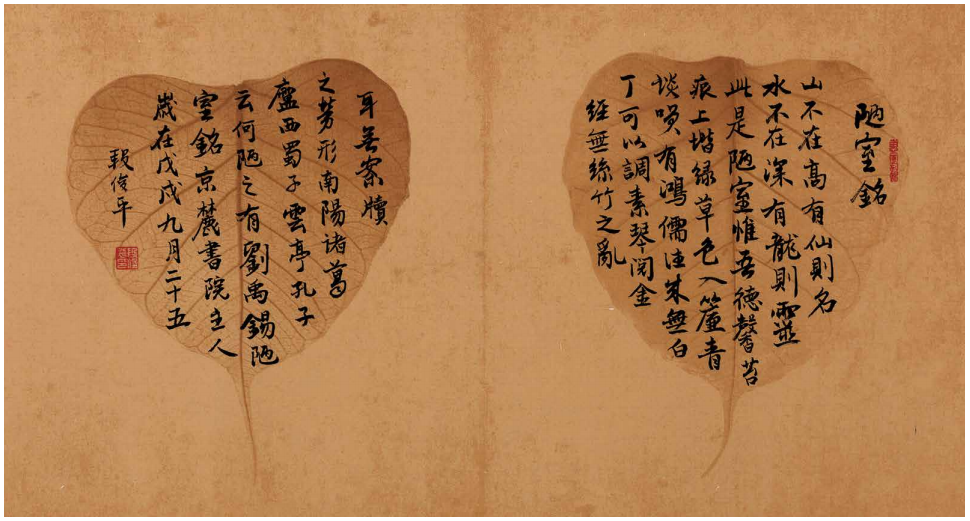 陋室銘
山不在高有仙則名
水不在深有龍則靈
此是陋室惟吾德馨苔
痕上堦绿草色入簾青
談咲有鴻儒往来無白
丁可以調素琴阅金
經無絲竹之亂
耳無案牘
之劳形南陽诸葛
廬西蜀子雲亭孔子
云何陋之有劉禹錫陋
室銘京麓書院主人
歲在戊戌九月二十五
俊平